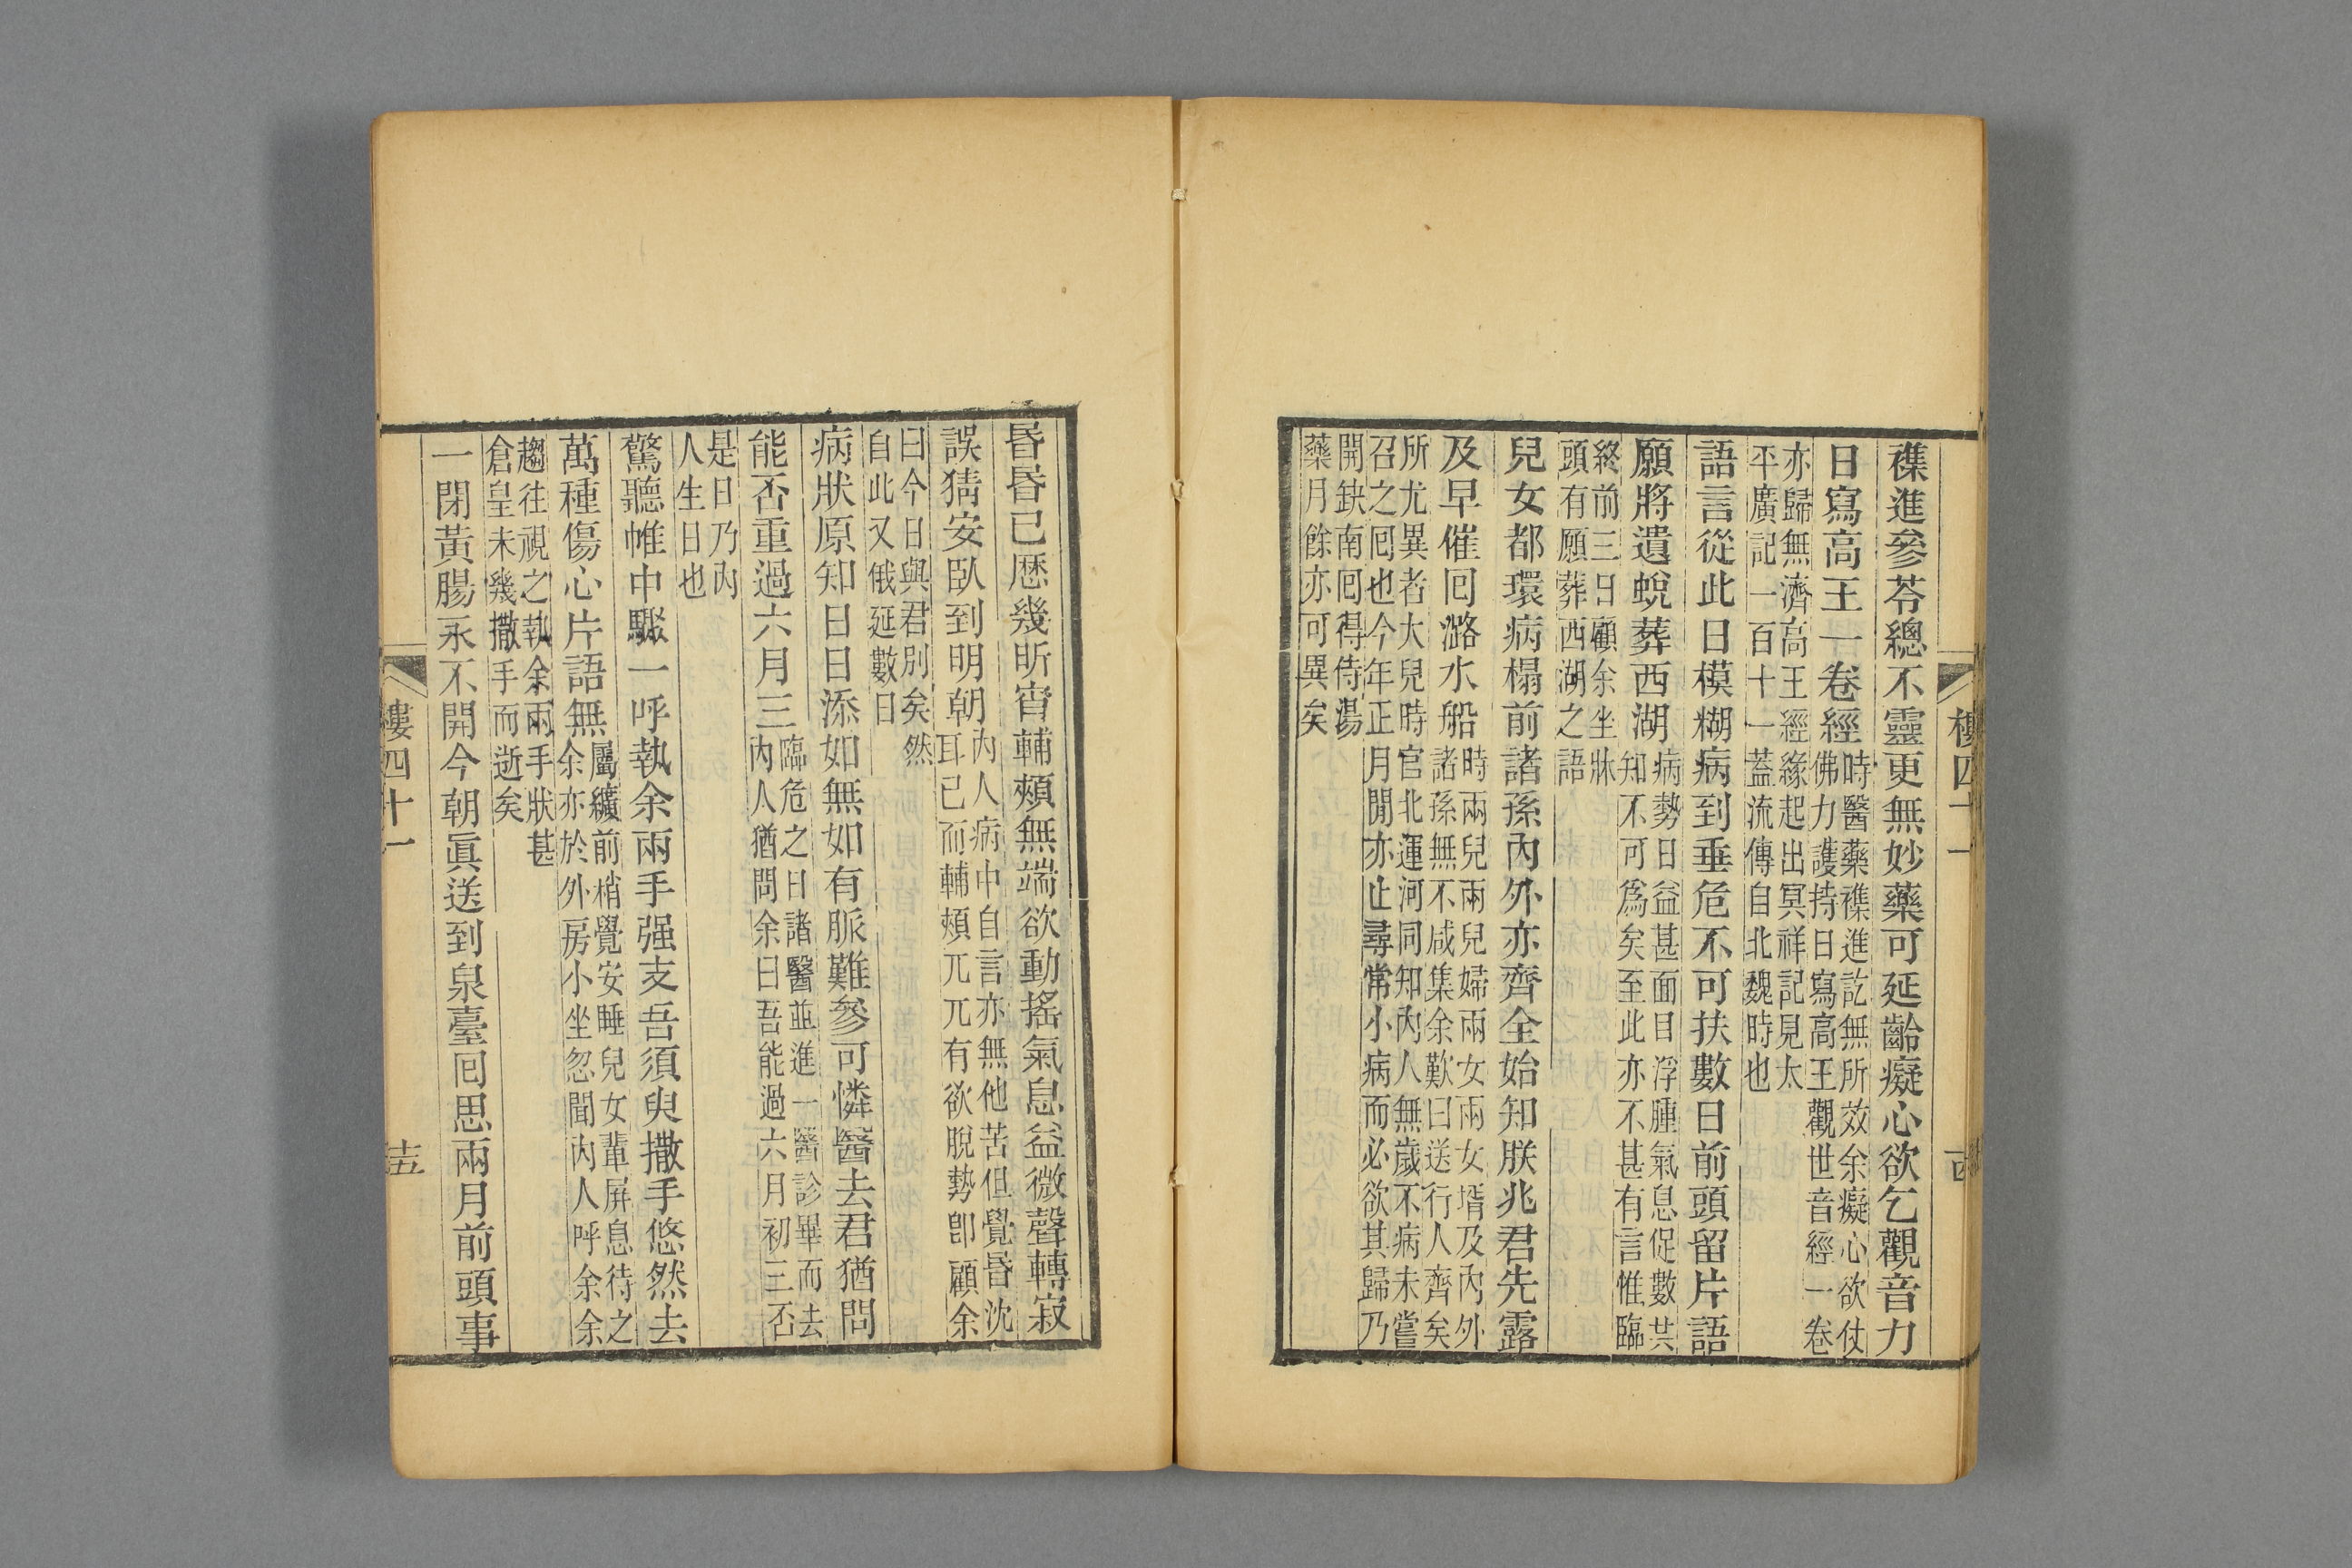 樓四十一
十四
襍進參苓總不靈更無妙藥可延齡癡心欲乞觀音力
日寫高王一卷經時醫藥襍進訖無所效余癡心欲仗
佛力護持日寫高王觀世音經一卷
亦歸無濟高王經緣起出冥祥記見太
平廣記一百十一蓋流傳自北魏時也
語言從此日模糊病到垂危不可扶數日前頭留片語
願將遺蛻葬西湖病勢日益甚面目浮腫氣息促數共
知不可爲矣至此亦不甚有言惟臨
終前三日顧余坐牀
頭有願葬西湖之語
兒女都環病榻前諸孫內外亦齊全始知朕兆君先露
及早催囘潞水船時兩兒兩兒婦兩女兩女壻及內外
諸孫無不咸集余歎曰送行人齊矣
所尤異者大兒時官北運河同知內人無歲不病未嘗
召之囘也今年正月閒亦止尋常小病而必欲其歸乃
開缺南囘得侍湯
藥月餘亦可異矣
昬昬已歷幾昕宵輔頰無端欲動搖氣息益微聲轉寂
誤猜安臥到明朝內人病中自言亦無他苦但覺昬沈
耳已而輔頰兀兀有欲脫勢卽顧余
曰今日與君別矣然
自此又俄延數日
病狀原知日日添如無如有脈難參可憐醫去君猶問
能否重過六月三臨危之日諸醫並進一醫診畢而去
內人猶問余曰吾能過六月初三否
是日乃內
人生日也
驚聽帷中驟一呼執余兩手强支吾須臾撒手悠然去
萬種傷心片語無屬纊前稍覺安睡兒女輩屏息待之
余亦於外房小坐忽聞內人呼余余
趨往視之執余兩手狀甚
倉皇未幾撒手而逝矣
一閉黃腸永不開今朝眞送到泉臺囘思兩月前頭事
樓四十一
十五